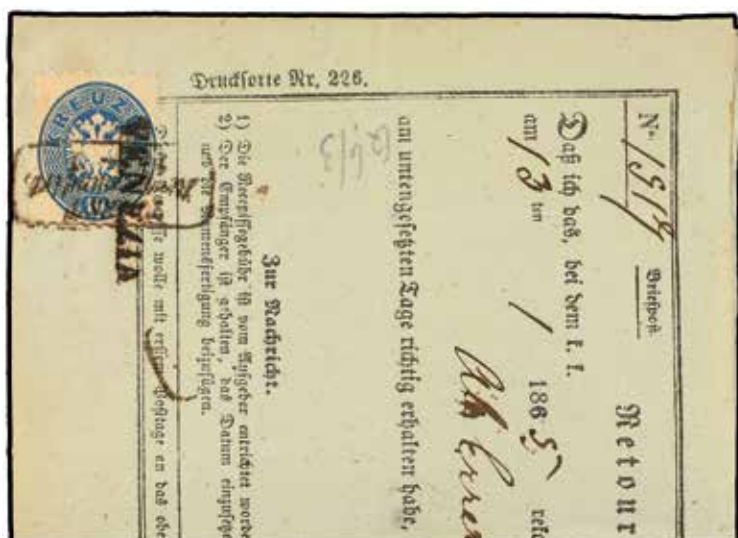 Drucksorte Nr. 226.
Nr. 1519 Briefpost.
Retour
Daß ich das, bei dem k. k.
am 13 ten / 1 1865
am untengesetzten Tage richtig erhalten habe,
Zur Nachricht.
1) Die Recepissegebühr ist vom Aufgeber entrichtet worde
2) Der Empfänger ist gehalten, das Datum einzusetze
und die Namensfertigung beizufügen.
wolle mit erstem Posttage an das obe
KREUZE
VENEZIA